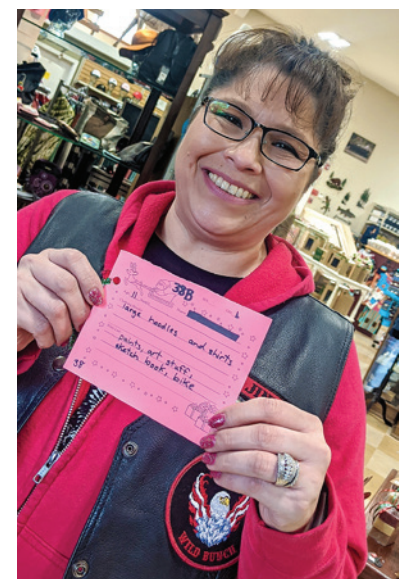 38B
11
large hoodies and shirts
paints, art stuff,
sketch book, bike
38
WILD BUNCH